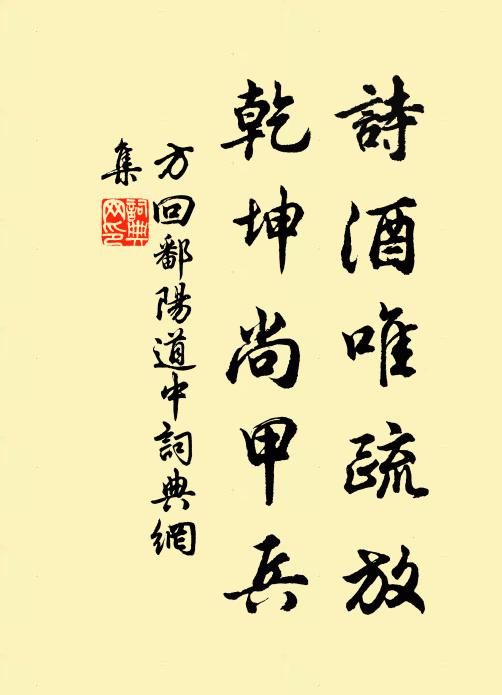 詩酒唯疏放
乾坤尚甲兵
方回鄱陽道中詞典網
集
詞典
网印